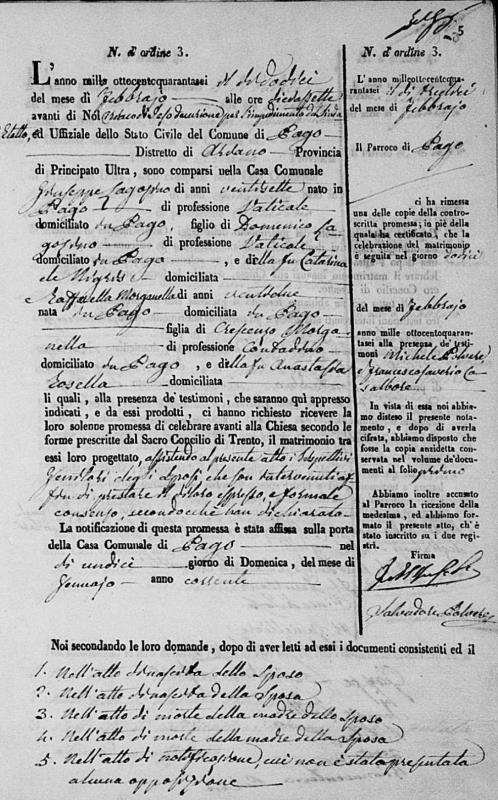 5
N. d'ordine 3.
L'anno mille ottocentoquarantasei il dì dodici
del mese di Febbrajo alle ore diecessette
avanti di Noi per l'impedimento del Sindaco
Eletto, ed Uffiziale dello Stato Civile del Comune di Pago
Distretto di Ariano Provincia
di Principato Ultra, sono comparsi nella Casa Comunale
Giuseppe di anni ventisette nato in
Pago di professione Vaticale
domiciliato in Pago, figlio di Domenico
di professione Vaticale
domiciliato in Pago, e della fu Catarina
de Nigris domiciliata
e Raffaella Morganella di anni ventidue
nata in Pago domiciliata in Pago
figlia di Crescenzo Morga-
nella di professione Contadino
domiciliato in Pago, e della fu Anastasia
domiciliata
li quali, alla presenza de' testimonj, che saranno quì appresso
indicati, e da essi prodotti, ci hanno richiesto ricevere la
loro solenne promessa di celebrare avanti alla Chiesa secondo le
forme prescritte dal Sacro Concilio di Trento, il matrimonio tra
essi loro progettato, assistendo al presente atto i rispettivi
Genitori degli Sposi che son intervenuti a
fin di prestare il loro espresso, e formale
consenso, secondocche han dichiarato
La notificazione di questa promessa è stata affissa sulla porta
della Casa Comunale di Pago nel
dì undici giorno di Domenica, del mese di
Gennajo anno corrente
N. d'ordine 3.
L'anno milleottocentoqua-
rantasei il dì
del mese di Febbrajo
Il Parroco di Pago
ci ha rimessa
una delle copie della contro-
scritta promessa; in piè della
quale ha certificato, che la
celebrazione del matrimonio
è seguita nel giorno dodici
del mese di Febbrajo
anno mille ottocentoquaran-
tasei alla presenza de' testi-
monj Michele Polvere
e Francescosaverio Ca-
salbore
In vista di essa noi abbia-
mo disteso il presente notamen-
to, e dopo di averla
cifrata, abbiamo disposto che
fosse la copia anzidetta conser-
vata nel volume de' do-
cumenti al folio primo
Abbiamo inoltre accusato
al Parroco la ricezione della
medesima, ed abbiamo for-
mato il presente atto, ch' è
stato inscritto su i due regi-
stri.
Firma
Salvadore Polvere
Noi secondando le loro domande, dopo di aver letti ad essi i documenti consistenti ed il
1. Nell'atto di nascita dello Sposo
2. Nell'atto di nascita della Sposa
3. Nell'atto di morte della madre dello Sposo
4. Nell'atto di morte della madre della Sposa
5. Nell'atto di notificazione, cui non è stata presentata
alcuna opposizione